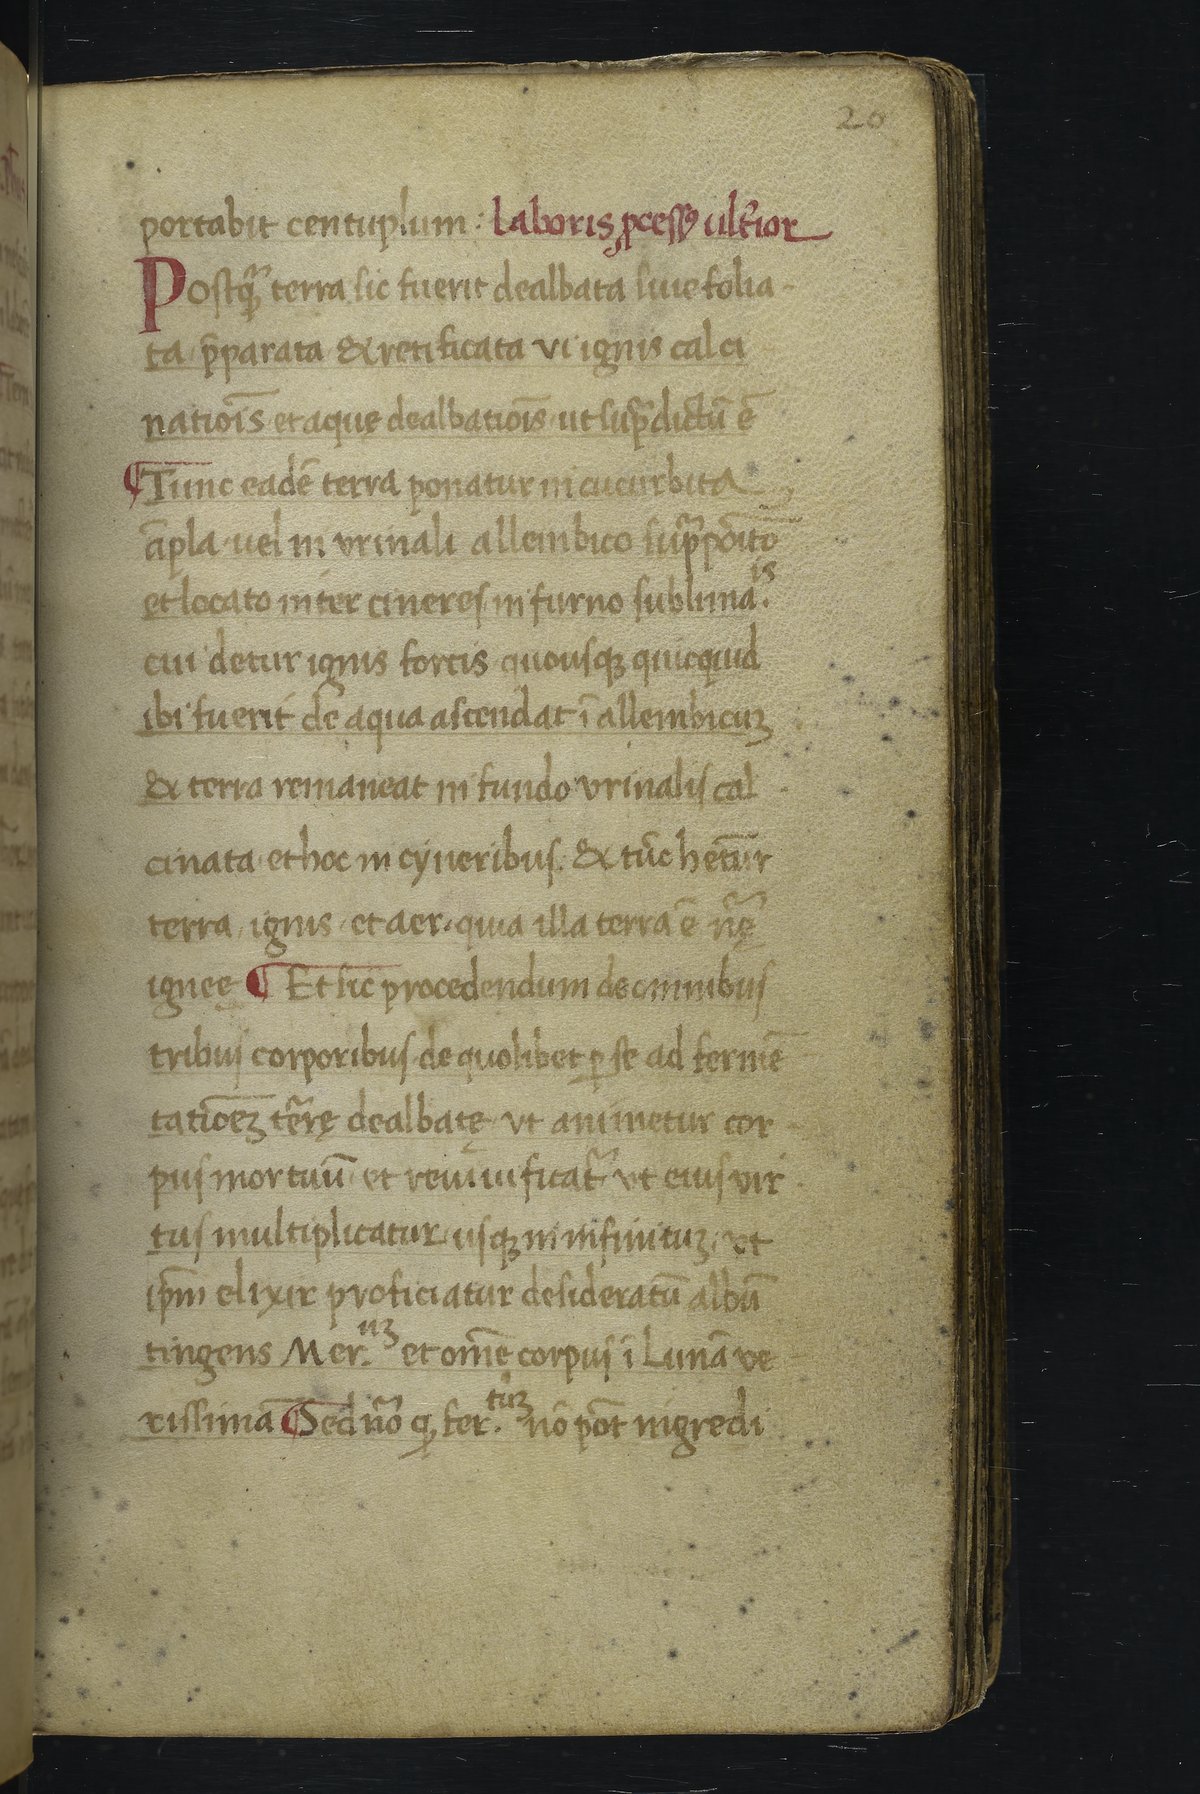 20
portabit centuplum : laboris ꝓcessꝰ ult̃ior
Postꝙ̃ terra sic fuerit dealbata siue folia-
ta p̃parata & retificata vi ignis calci
natiois̃ et aquę dealbatiois̃ ut sup̃dictũ ẽ
¶ Tunc eadẽ terra ponatur in cucurbita
ãpla uel in vrinali allembico sup̃põito
et locato inter cineres in furno sublima.is
cui detur ignis fortis quousqꝫ quicquid
ibi fuerit de aqua ascendat ĩ allembicuꝫ
& terra remaneat in fundo vrinalis cal
cinata et hoc in cyneribus. & tũc het̃ur
terra, ignis et aer, quia illa terra ẽ nr̃ę
ignee ¶ Et sic procedendum de omnibus
tribus corporibus de quolibet ꝑ se ad fermẽ
tatioẽꝫ ter̃ę dealbatę vt animetur cor-
pus mortuũ et reuiuificat᷑ vt eius vir
tus multiplicatur usqꝫ in infinituꝫ, vt
ip̃m elixir proficiatur desideratũ albũ
tingens Mer.uꝫ et om̃e corpus ĩ Lunã ve-
rissimã ¶ Sed nõ qꝫ fer.tuꝫ nõ põt ingredi